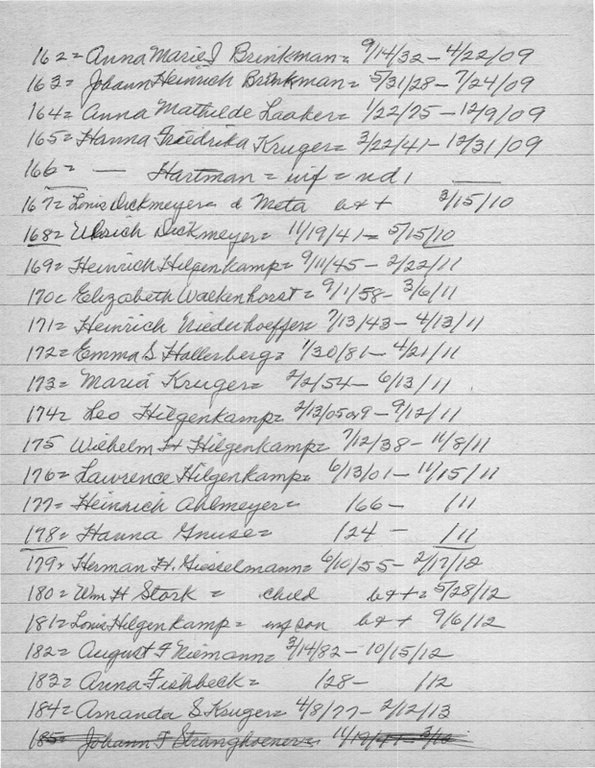 162 = Anna Marie I Brinkman = 9/14/32 - 4/22/09
163 = Johann Heinrich Brinkman = 5/31/28 - 7/24/09
164 = Anna Mathilde Laaker = 1/22/75 - 12/9/09
165 = Hanna Friedrika Kruger = 3/22/41 - 12/31/09
166 = — Hartman = inf = nd 1 —
167 = Louis Dickmeyer = d Meta b++ 3/15/10
168 = Ulrich Dickmeyer = 11/19/41 - 5/15/10
169 = Heinrich Hilgenkamp = 9/11/45 - 2/22/11
170 = Elizabeth Walkenhorst = 9/1/58 - 3/6/11
171 = Heinrich Niederhoeffer = 7/13/43 - 4/13/11
172 = Emma S Hallerberg = 1/30/81 - 4/21/11
173 = Maria Kruger = 2/2/54 - 6/13/11
174 = Leo Hilgenkamp = 2/13/05 or 9 - 9/12/11
175 Wilhelm H Hilgenkamp = 7/12/38 - 11/8/11
176 = Lawrence Hilgenkamp = 6/13/01 - 11/15/11
177 = Heinrich Ahlmeyer = /66 - /11
178 = Hanna Gnuse = /24 - /11
179 = Herman H. Giesselmann = 6/10/55 - 2/17/12
180 = Wm H Stork = child b++ = 5/28/12
181 = Louis Hilgenkamp = inf son b++ 9/6/12
182 = August F Niemann = 3/14/82 - 10/15/12
183 = Anna Fishbeck = /28 - /12
184 = Amanda S Kruger = 4/8/77 - 2/12/13
185 = Johann F Stranghoener = 11/19/